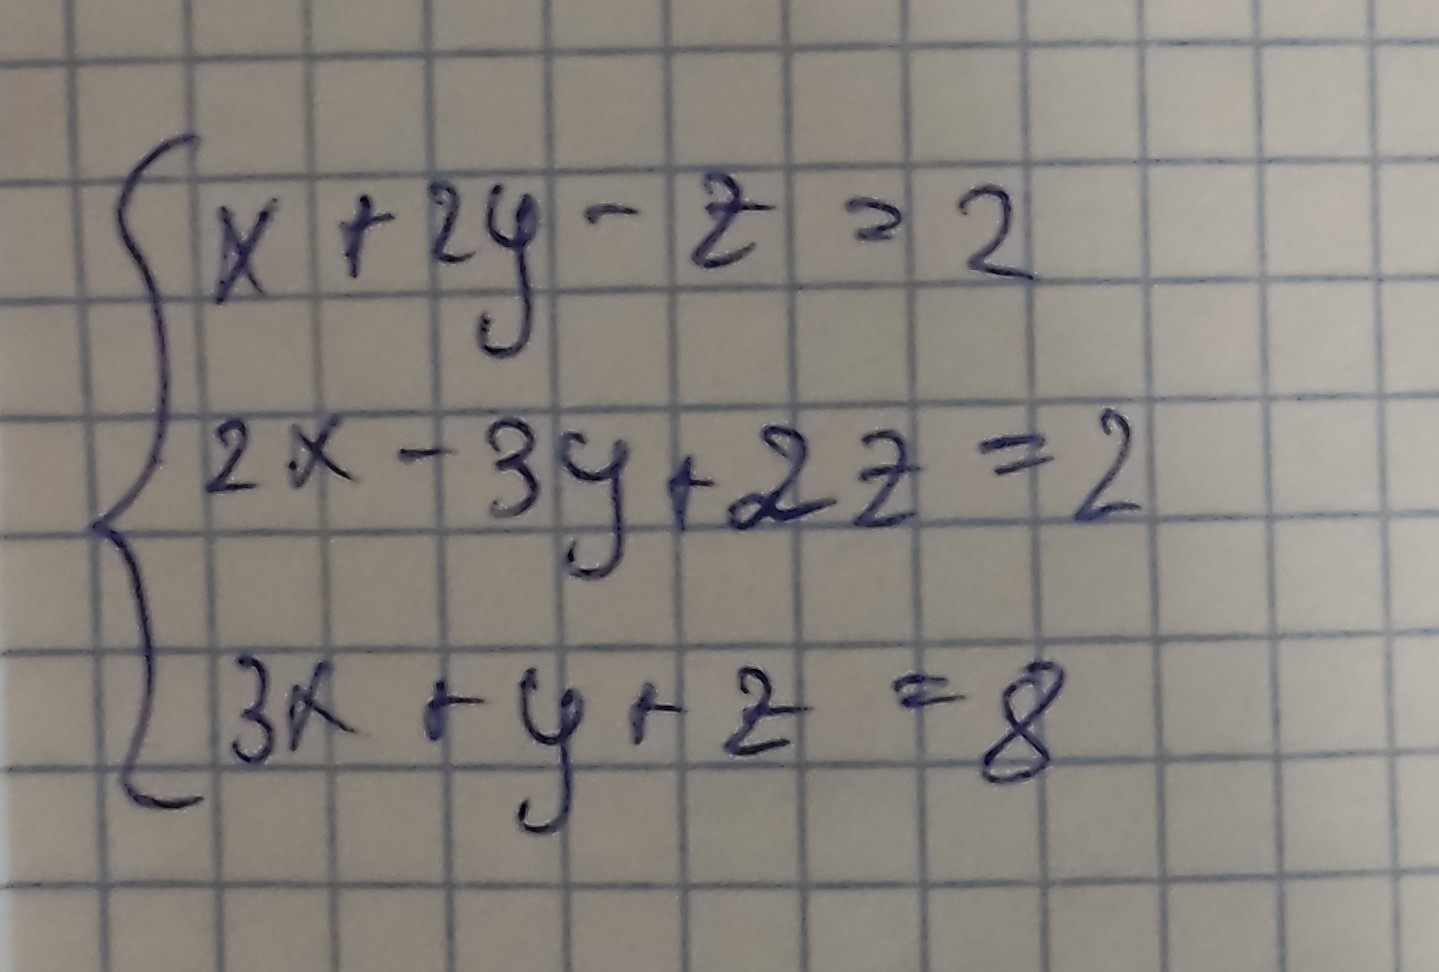 x + 2y - z = 2
2x - 3y + 2z = 2
3x + y + z = 8